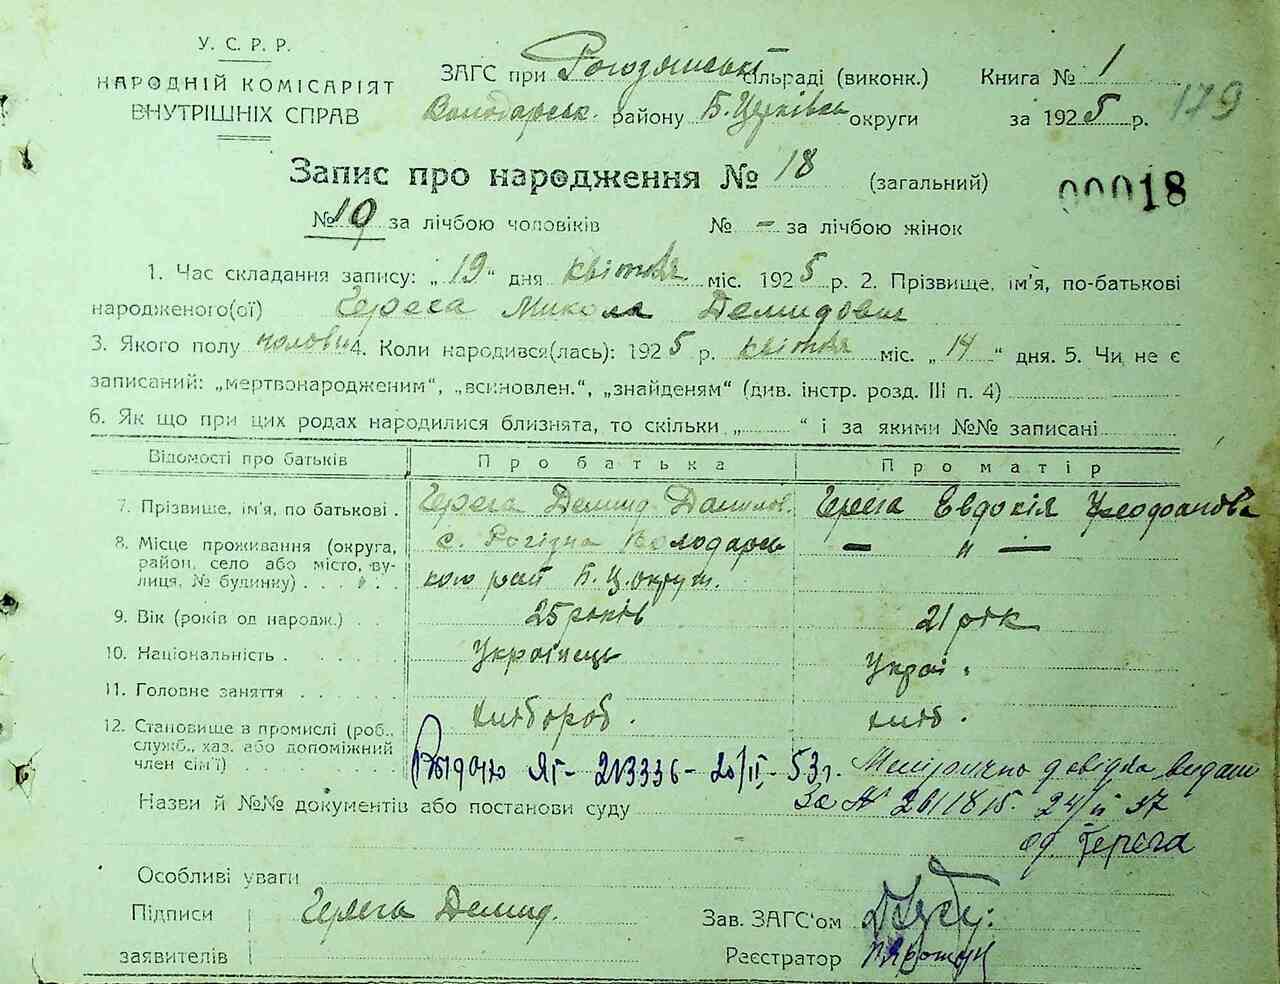 У. С. Р. Р.
НАРОДНІЙ КОМІСАРІЯТ
ВНУТРІШНІХ СПРАВ
ЗАГС при сільраді (виконк.) Книга № 1
Володарськ. району Б. Церківськ округи за 1925 р. 179
Запис про народження № 18 (загальний) 00018
№ 10 за лічбою чоловіків № – за лічбою жінок
1. Час складання запису: „19“ дня квітня міс. 1925 р. 2. Прізвище, ім'я, по-батькові
народженого(ої) Герега Микола Демидович
3. Якого полу чоловіч 4. Коли народився(лась): 1925 р. квітня міс. „14“ дня. 5. Чи не є
записаний: „мертвонародженим“, „всиновлен.“, „знайденям“ (див. інстр. розд. III п. 4)
6. Як що при цих родах народилися близнята, то скільки „ “ і за якими №№ записані
Відомості про батьків Про батька Про матір
7. Прізвище, ім'я, по батькові . Герега Демид Данилов. Герега Евдокія
8. Місце проживання (округа, район, село або місто, вулиця, № будинку) . . . с. Рогізна Володарсь – „ –
кого рай Б. Ц. округи.
9. Вік (років од народж.) . . 25 років 21 рік
10. Національність . Українець Украі.
11. Головне заняття
12. Становище в промислі (роб., служб., хаз. або допоміжний член сім'ї) хлібороб. хліб.
Выдано ЯГ- 213336 - 20/II - 53 г. довідка видана
Назви й №№ документів або постанови суду За № 2611815 24/II 37
од. Герега
Особливі уваги
Підписи Герега Демид. Зав. ЗАГС'ом
заявителів Реєстратор